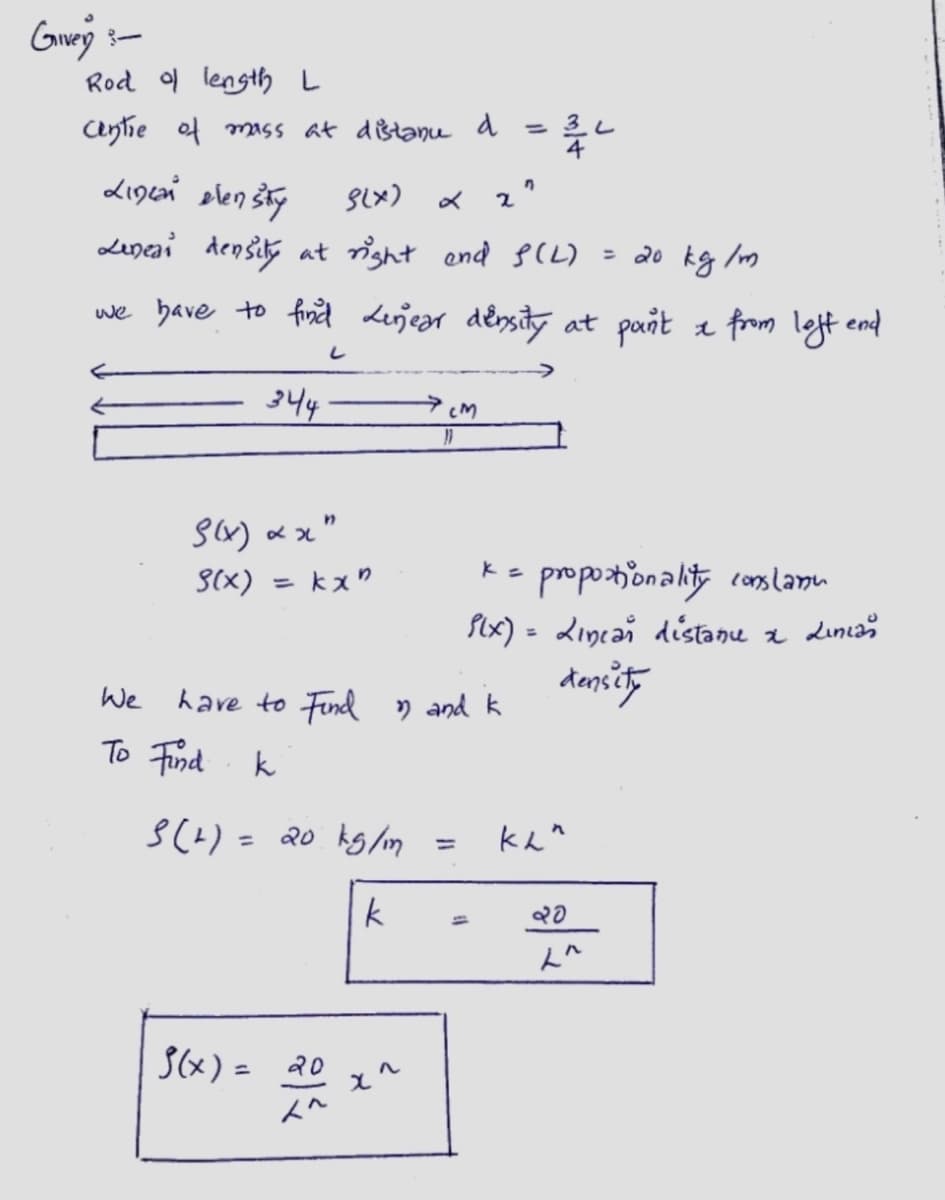 Given :-
Rod of length L
Centre of mass at distance d = 3/4 L
Linear density ρ(x) ∝ x^n
Linear density at right end ρ(L) = 20 kg/m
we have to find Linear density at point x from left end
L
3L/4 CM
ρ(x) ∝ x^n
ρ(x) = k x^n k = proportionality constant
ρ(x) = Linear distance x Linear
density
We have to Find n and k
To Find k
ρ(L) = 20 kg/m = k L^n
k = 20/L^n
ρ(x) = 20/L^n x^n